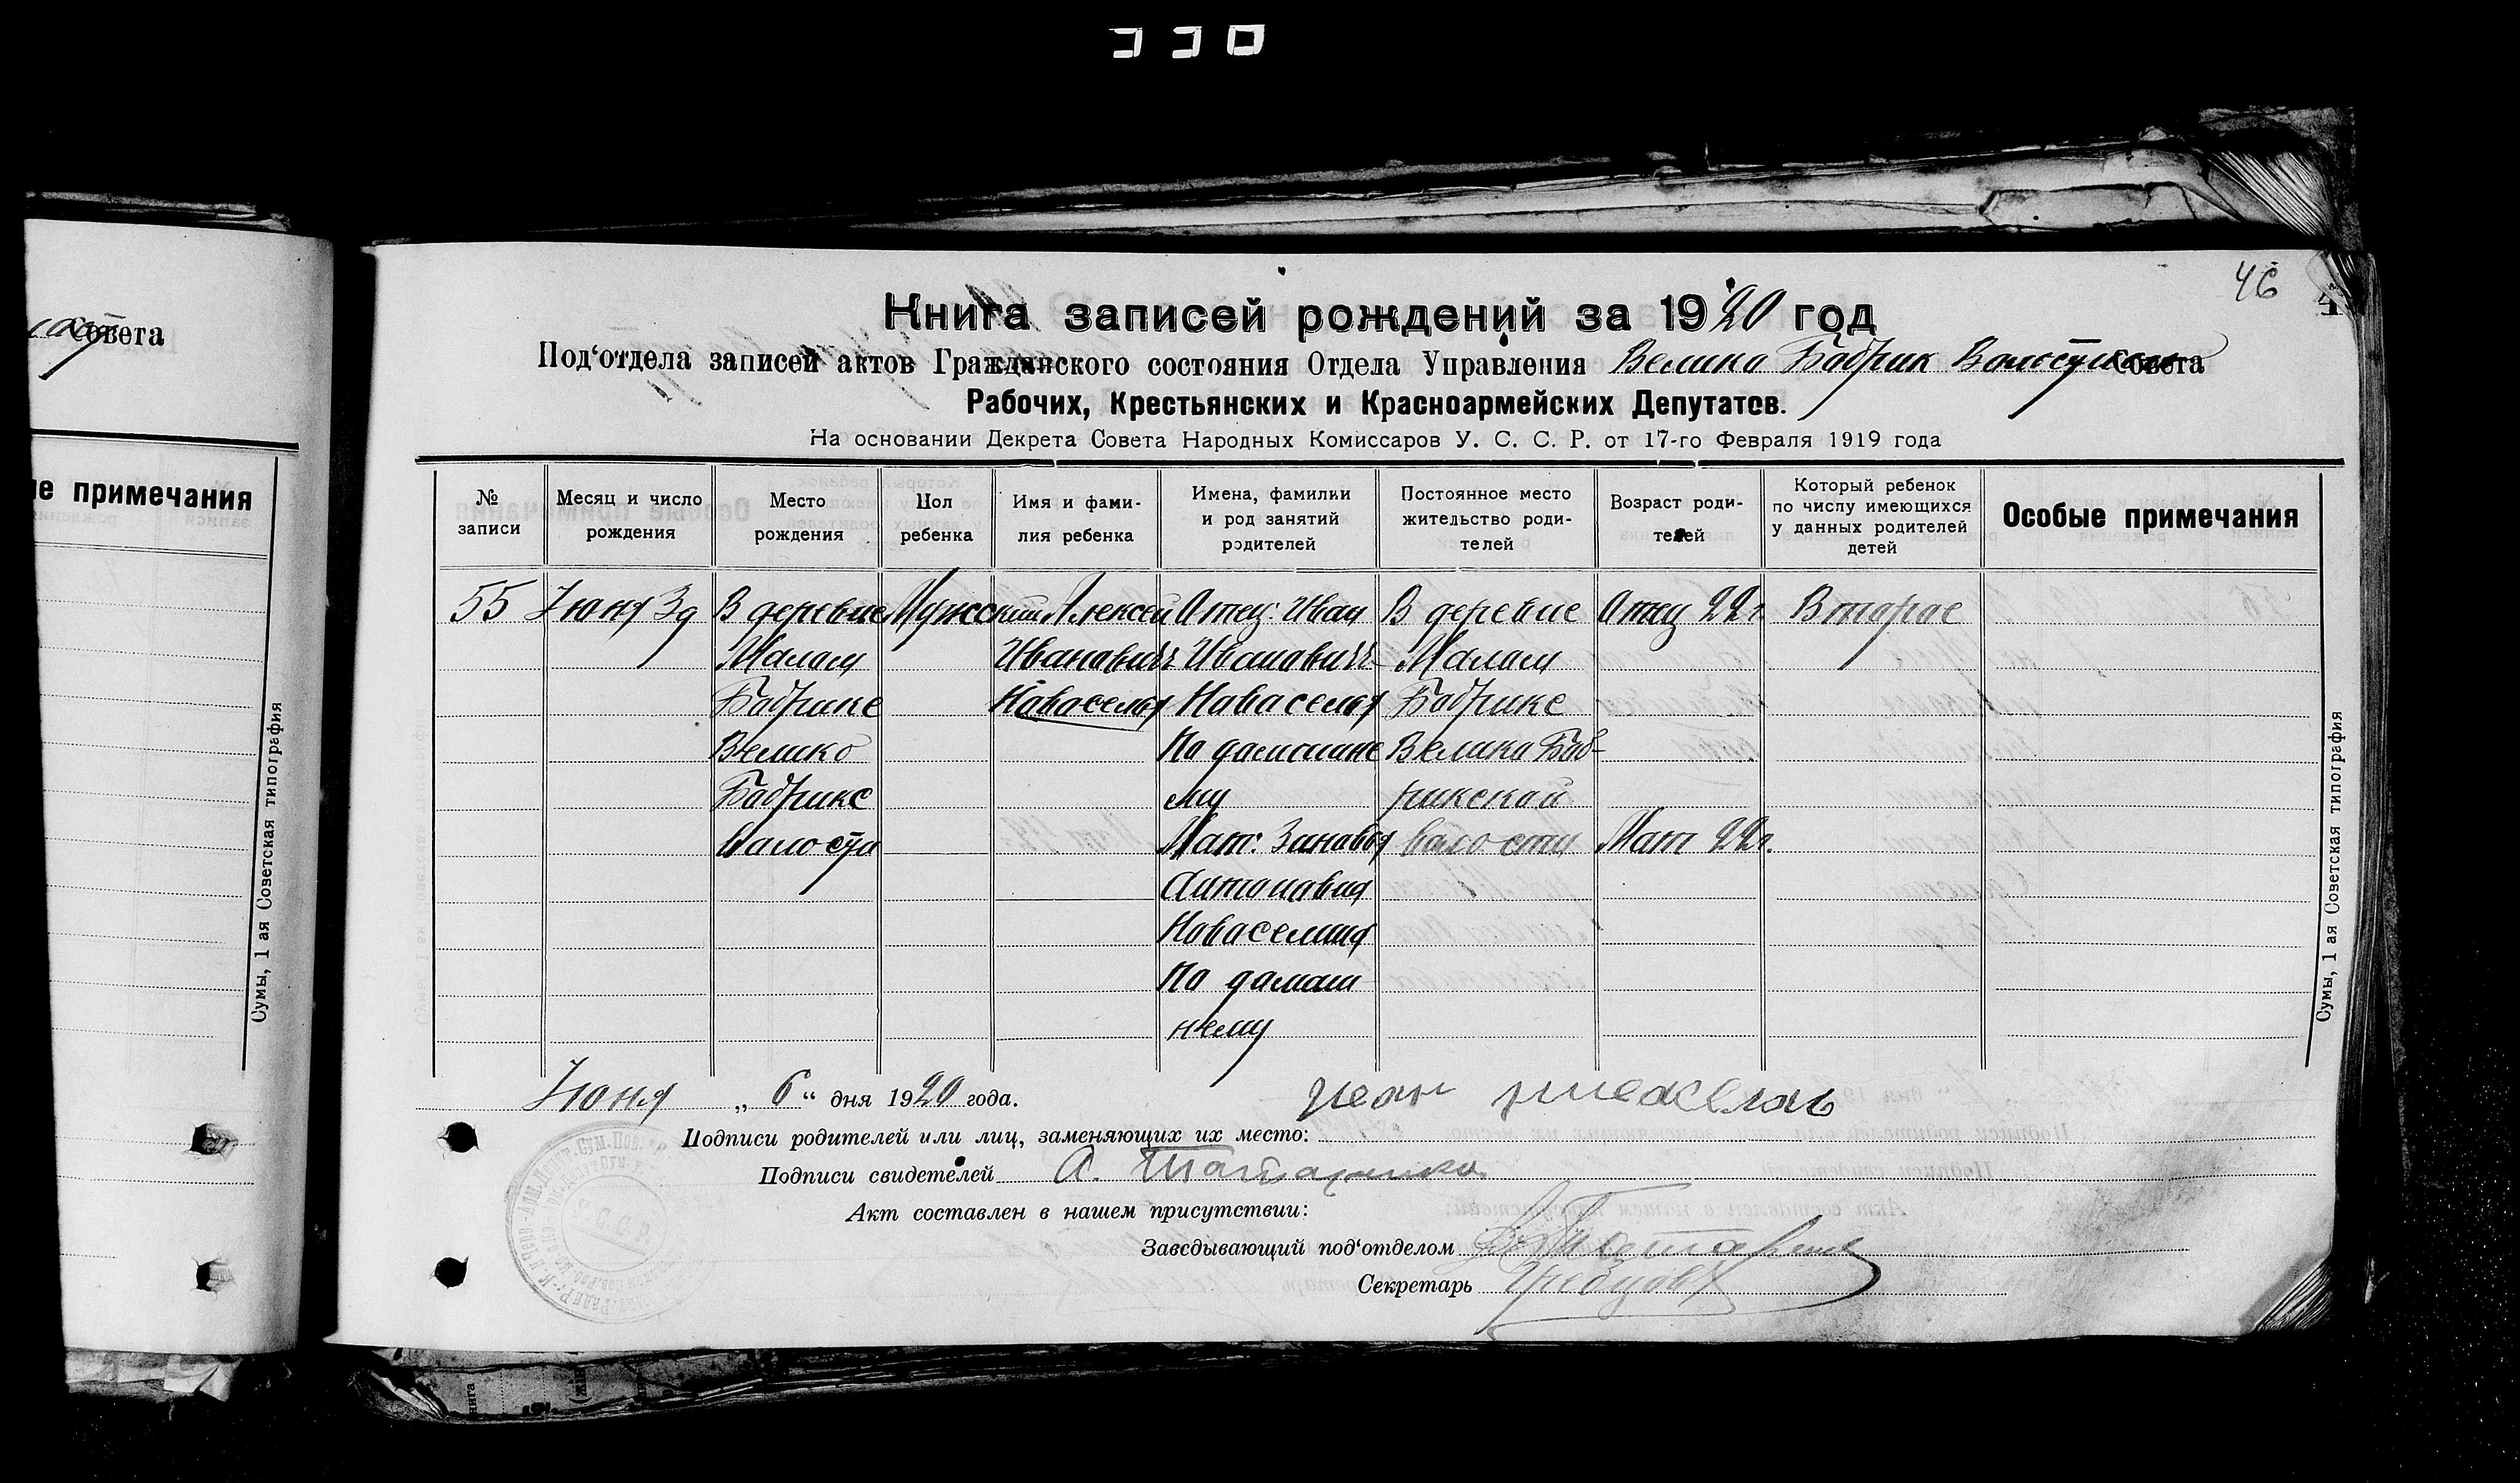 46
Совета
Книга записей рождений за 1920 год
Под'отдела записей актов Гражданского состояния Отдела Управления Велико Бобрик Совета
Рабочих, Крестьянских и Красноармейских Депутатов.
На основании Декрета Совета Народных Комиссаров У. С. С. Р. от 17-го Февраля 1919 года
примечания
№ записи
Месяц и число рождения
Место рождения
Пол ребенка
Имя и фами- лия ребенка
Имена, фамилии и род занятий родителей
Постоянное место жительство роди- телей
Возраст роди- телей
Который ребенок по числу имеющихся у данных родителей детей
Особые примечания
55 Июня 3д В деревне Мужский Алексей Отец: Иван В деревне Отец 22г. Второе
Малом Иванович Иванович Малом
Бобрике Наваселов Наваселов Бобрике
Велико По домашне Велико Боб-
му рикской
Мат: волости Мат 22г.
Антоновна
По дамаш
нему
Июня „ 6 “ дня 1920 года.
Подписи родителей или лиц, заменяющих их место:
Подписи свидетелей А.
Акт составлен в нашем присутствии:
Заведывающий под'отделом
Секретарь
Сумы, 1 ая Советская типография
Сумы, 1 ая Советская типография